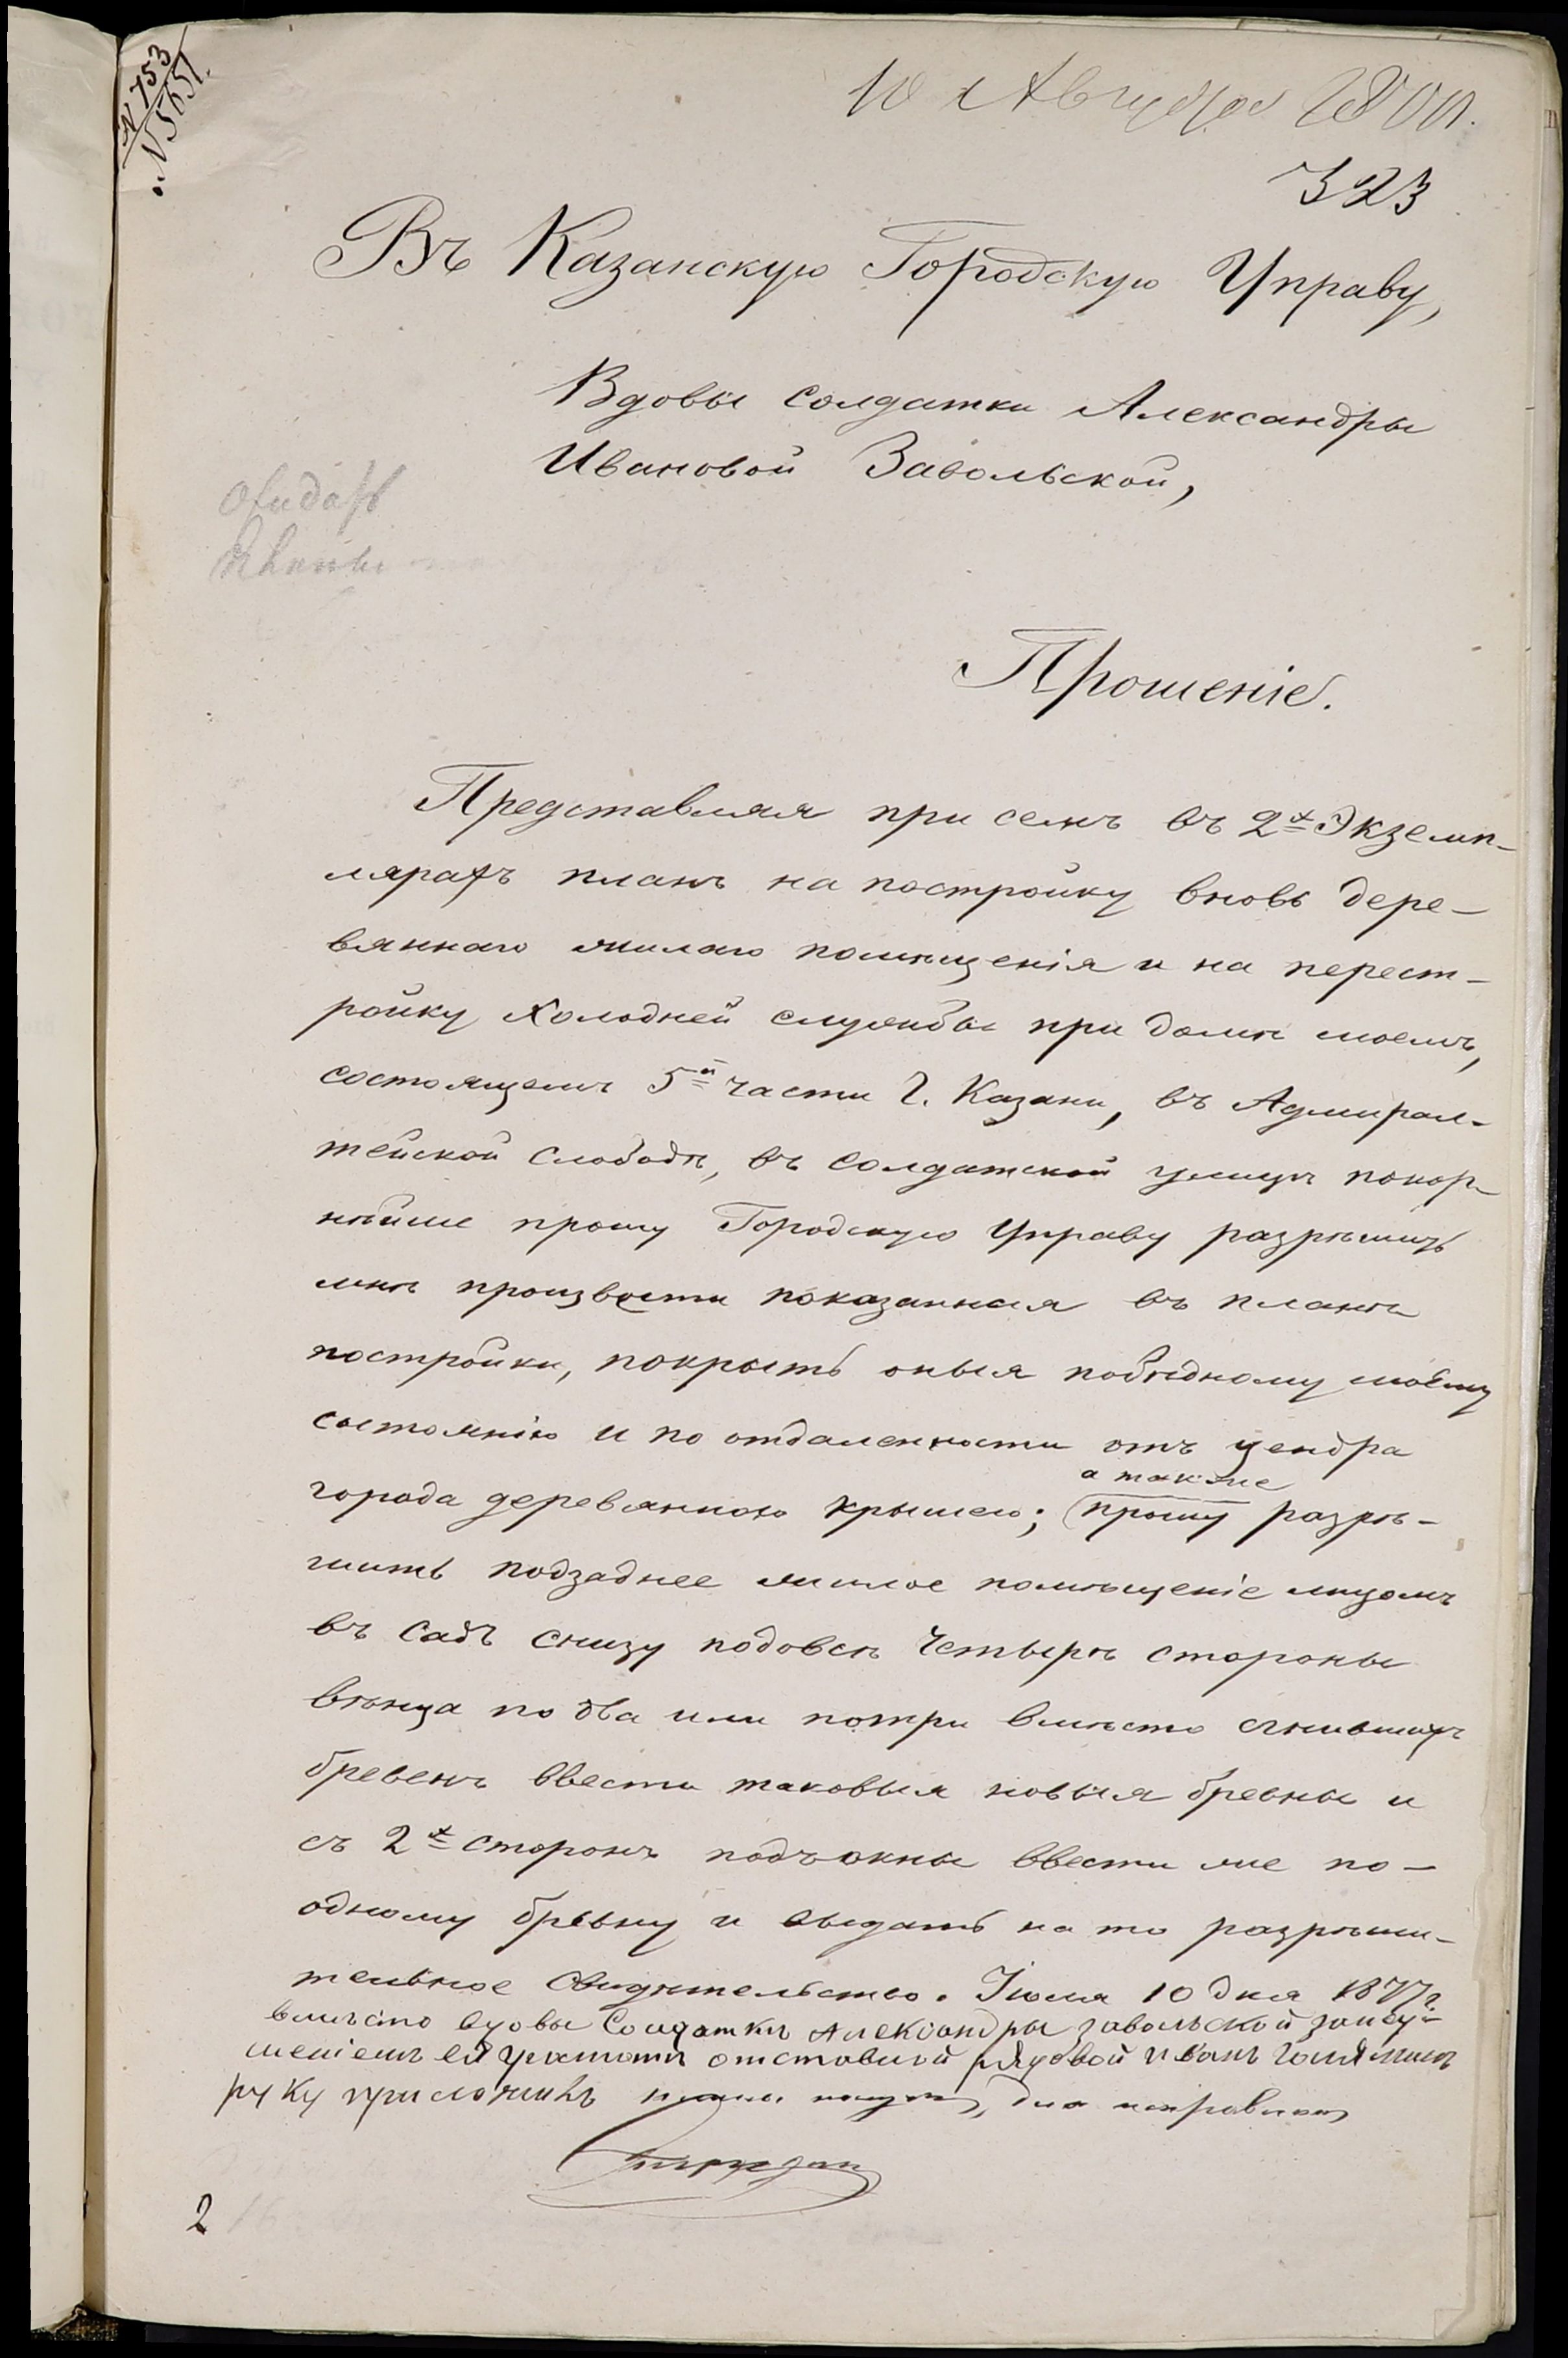 № 753
№ 5651.
10 Августа
323
Въ Казанскую Городскую Управу,
Вдовы солдатки Александры
Ивановой Завольской,
Прошеніе.
Представляя при семъ въ 2х Экземп-
лярахъ планъ на постройку вновь дере-
вяннаго жилаго помѣщенія и на перест-
ройку холодней службы при домѣ моемъ,
состоящемъ 5й части г. Казани, въ Адмирал-
тейской слободѣ, въ солдатской улицѣ покор-
нѣйше прошу Городскую Управу разрѣшить
мнѣ произвести показанная въ планѣ
постройки, покрыть оныя побѣдному моему
состоянію и по отдаленности отъ цендра
а также
города деревянною крышею; (прошу разрѣ-
шить подзаднее жилое помѣщеніе лицомъ
въ садъ снизу подовсѣ четырѣ стороны
вѣнца по два или потри вмѣсто сгнившихъ
бревенъ ввести таковыя новыя бревны и
съ 2х сторонъ подъ окны ввести же по-
одному бревну и выдать на то разрѣши-
тельное свидѣтельство. Іюля 10 дня 1877 г.
вмѣсто вдовы Солдатки Александры завольской занеу-
меніемъ ей грамоты отставной рядовой иванъ
руку приложилъ
2